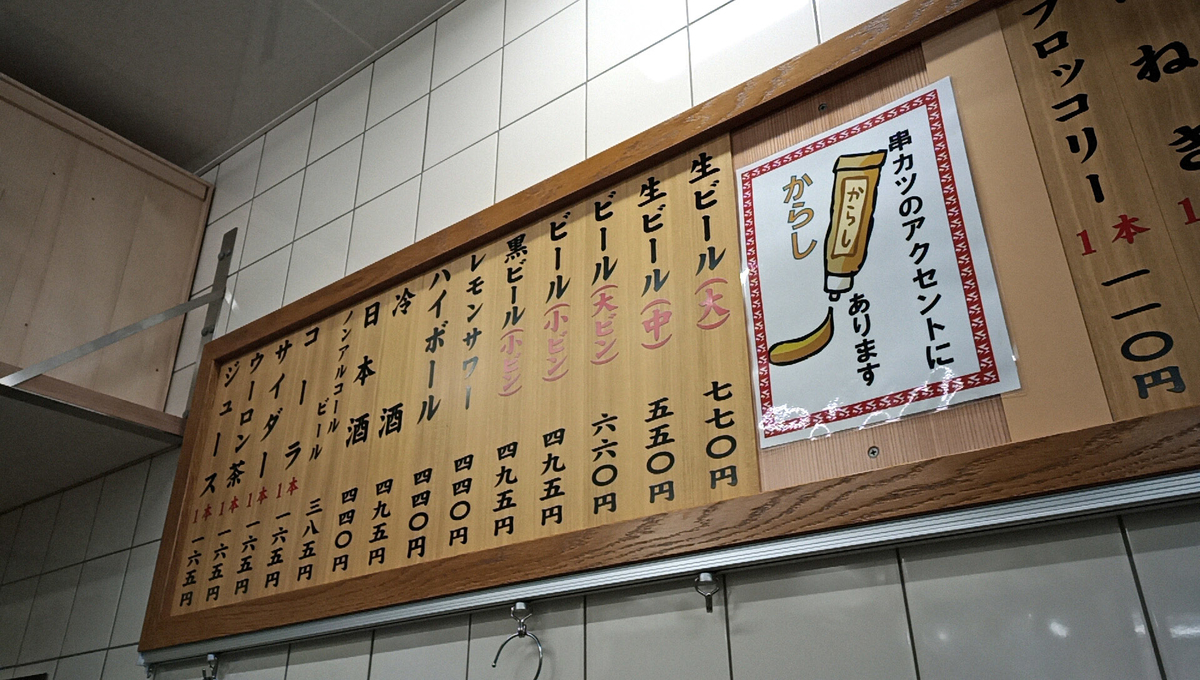 ねぎ 1
ブロッコリー 1本 一一〇円
串カツのアクセントに
あります
からし
からし
生ビール(大) 七七〇円
生ビール(中) 五五〇円
ビール(大ビン) 六六〇円
ビール(小ビン) 四九五円
黒ビール(小ビン) 四九五円
レモンサワー 四四〇円
ハイボール 四四〇円
冷酒 四九五円
日本酒 四四〇円
ノンアルコールビール 三八五円
コーラ 1本 一六五円
サイダー 1本 一六五円
ウーロン茶 1本 一六五円
ジュース 1本 一六五円